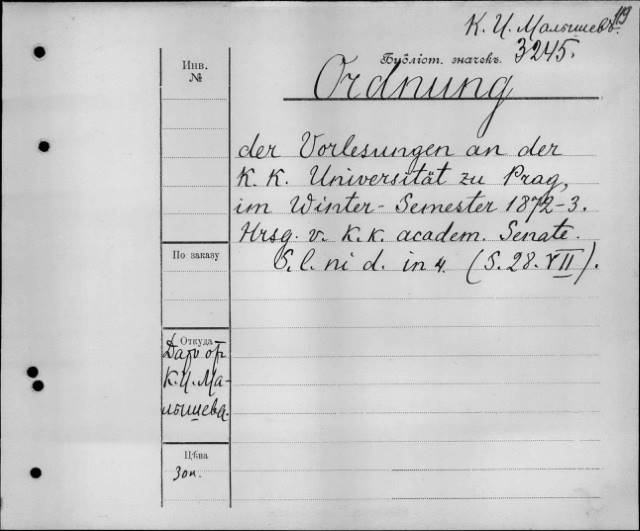 К. И. Малышевъ. 119
3245.
Бубліот. значекъ.
Инв.
№
Ordnung
der Vorlesungen an der
K. K. Universität zu Prag,
im Winter-Semester 1872-3.
Hrsg. v. k. k. academ. Senate.
S. l. ni d. in 4. (S. 28. VII).
По заказу
Откуда
Даръ от
К. И. Ма-
лышева.
Цѣна
30 к.